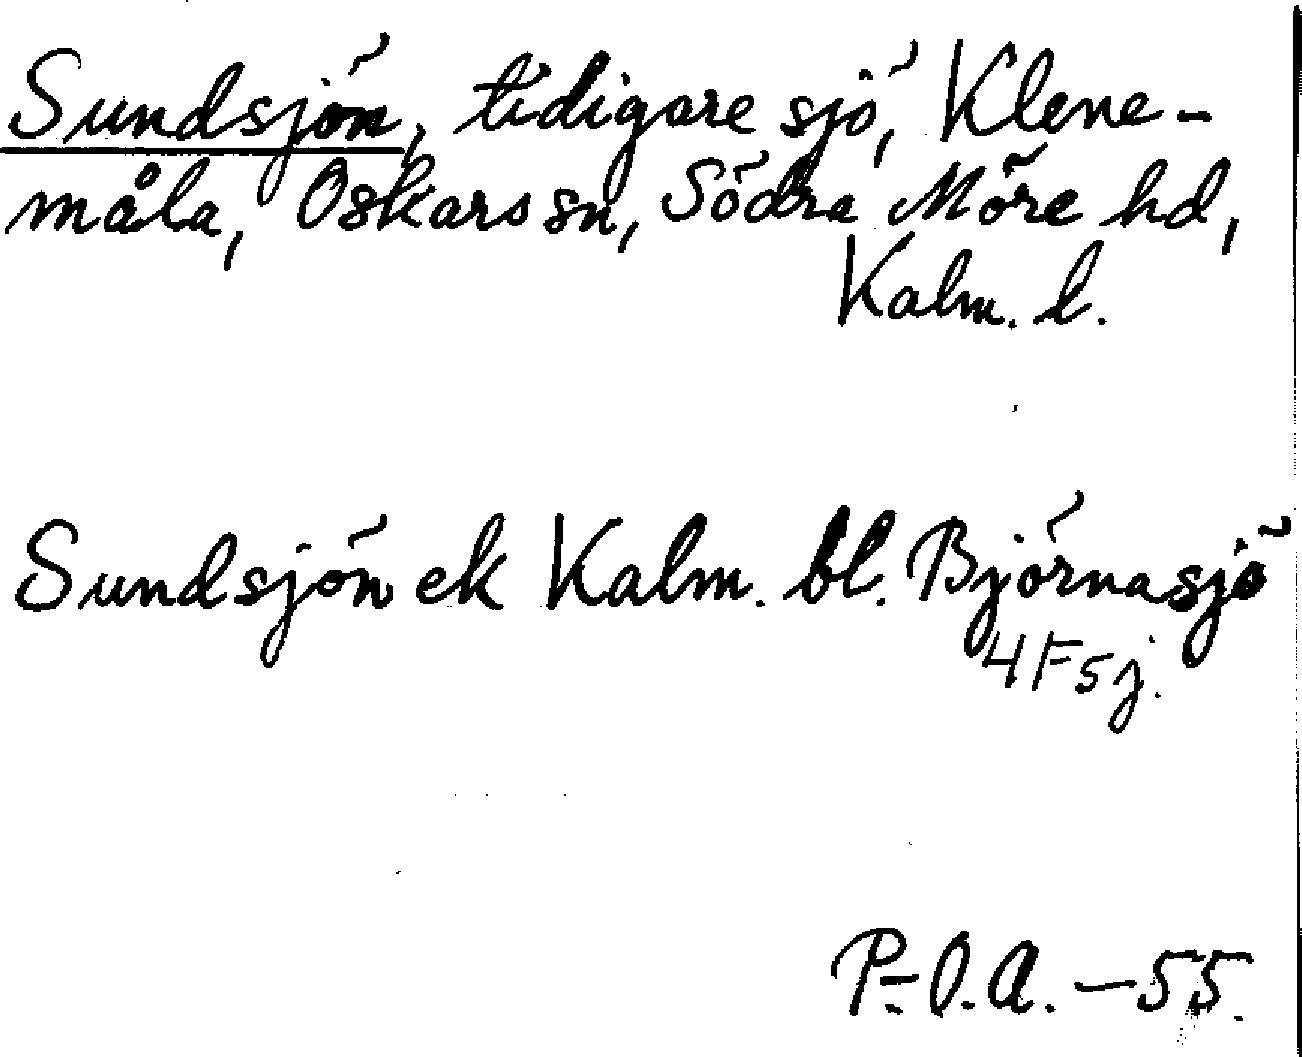 Sundsjön, tidigare sjö, Klene-
måla, Oskars sn, Södra Möre hd,
Kalm. l.
Sundsjön ek Kalm. bl. Björnasjö
4F5j.
P-O.A. – 55.